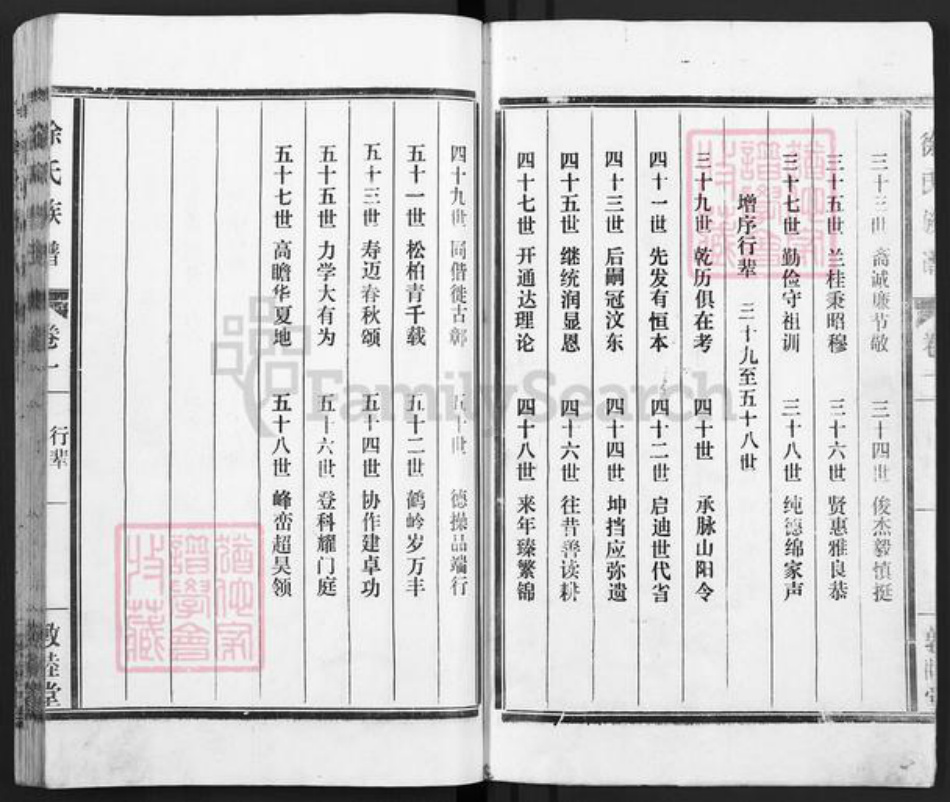 三十三世 裔诚廉节敬 三十四世 俊杰毅慎挺
三十五世 兰桂秉昭穆 三十六世 贤惠雅良恭
三十七世 勤俭守祖训 三十八世 纯德绵家声
增序行辈 三十九至五十八世
三十九世 乾历俱在考 四十世 承脉山阳令
四十一世 先发有恒本 四十二世 启迪世代省
四十三世 后嗣冠汶东 四十四世 坤挡应弥遗
四十五世 继统润显恩 四十六世 往昔善读耕
四十七世 开通达理论 四十八世 来年臻繁锦
四十九世 同偕徙古鄣 五十世 德操品端行
五十一世 松柏青千载 五十二世 鹤岭岁万丰
五十三世 寿迈春秋颂 五十四世 协作建卓功
五十五世 力学大有为 五十六世 登科耀门庭
五十七世 高瞻华夏地 五十八世 峰峦超昊领
徐氏族谱 卷一 行辈 敦睦堂
FamilySearch